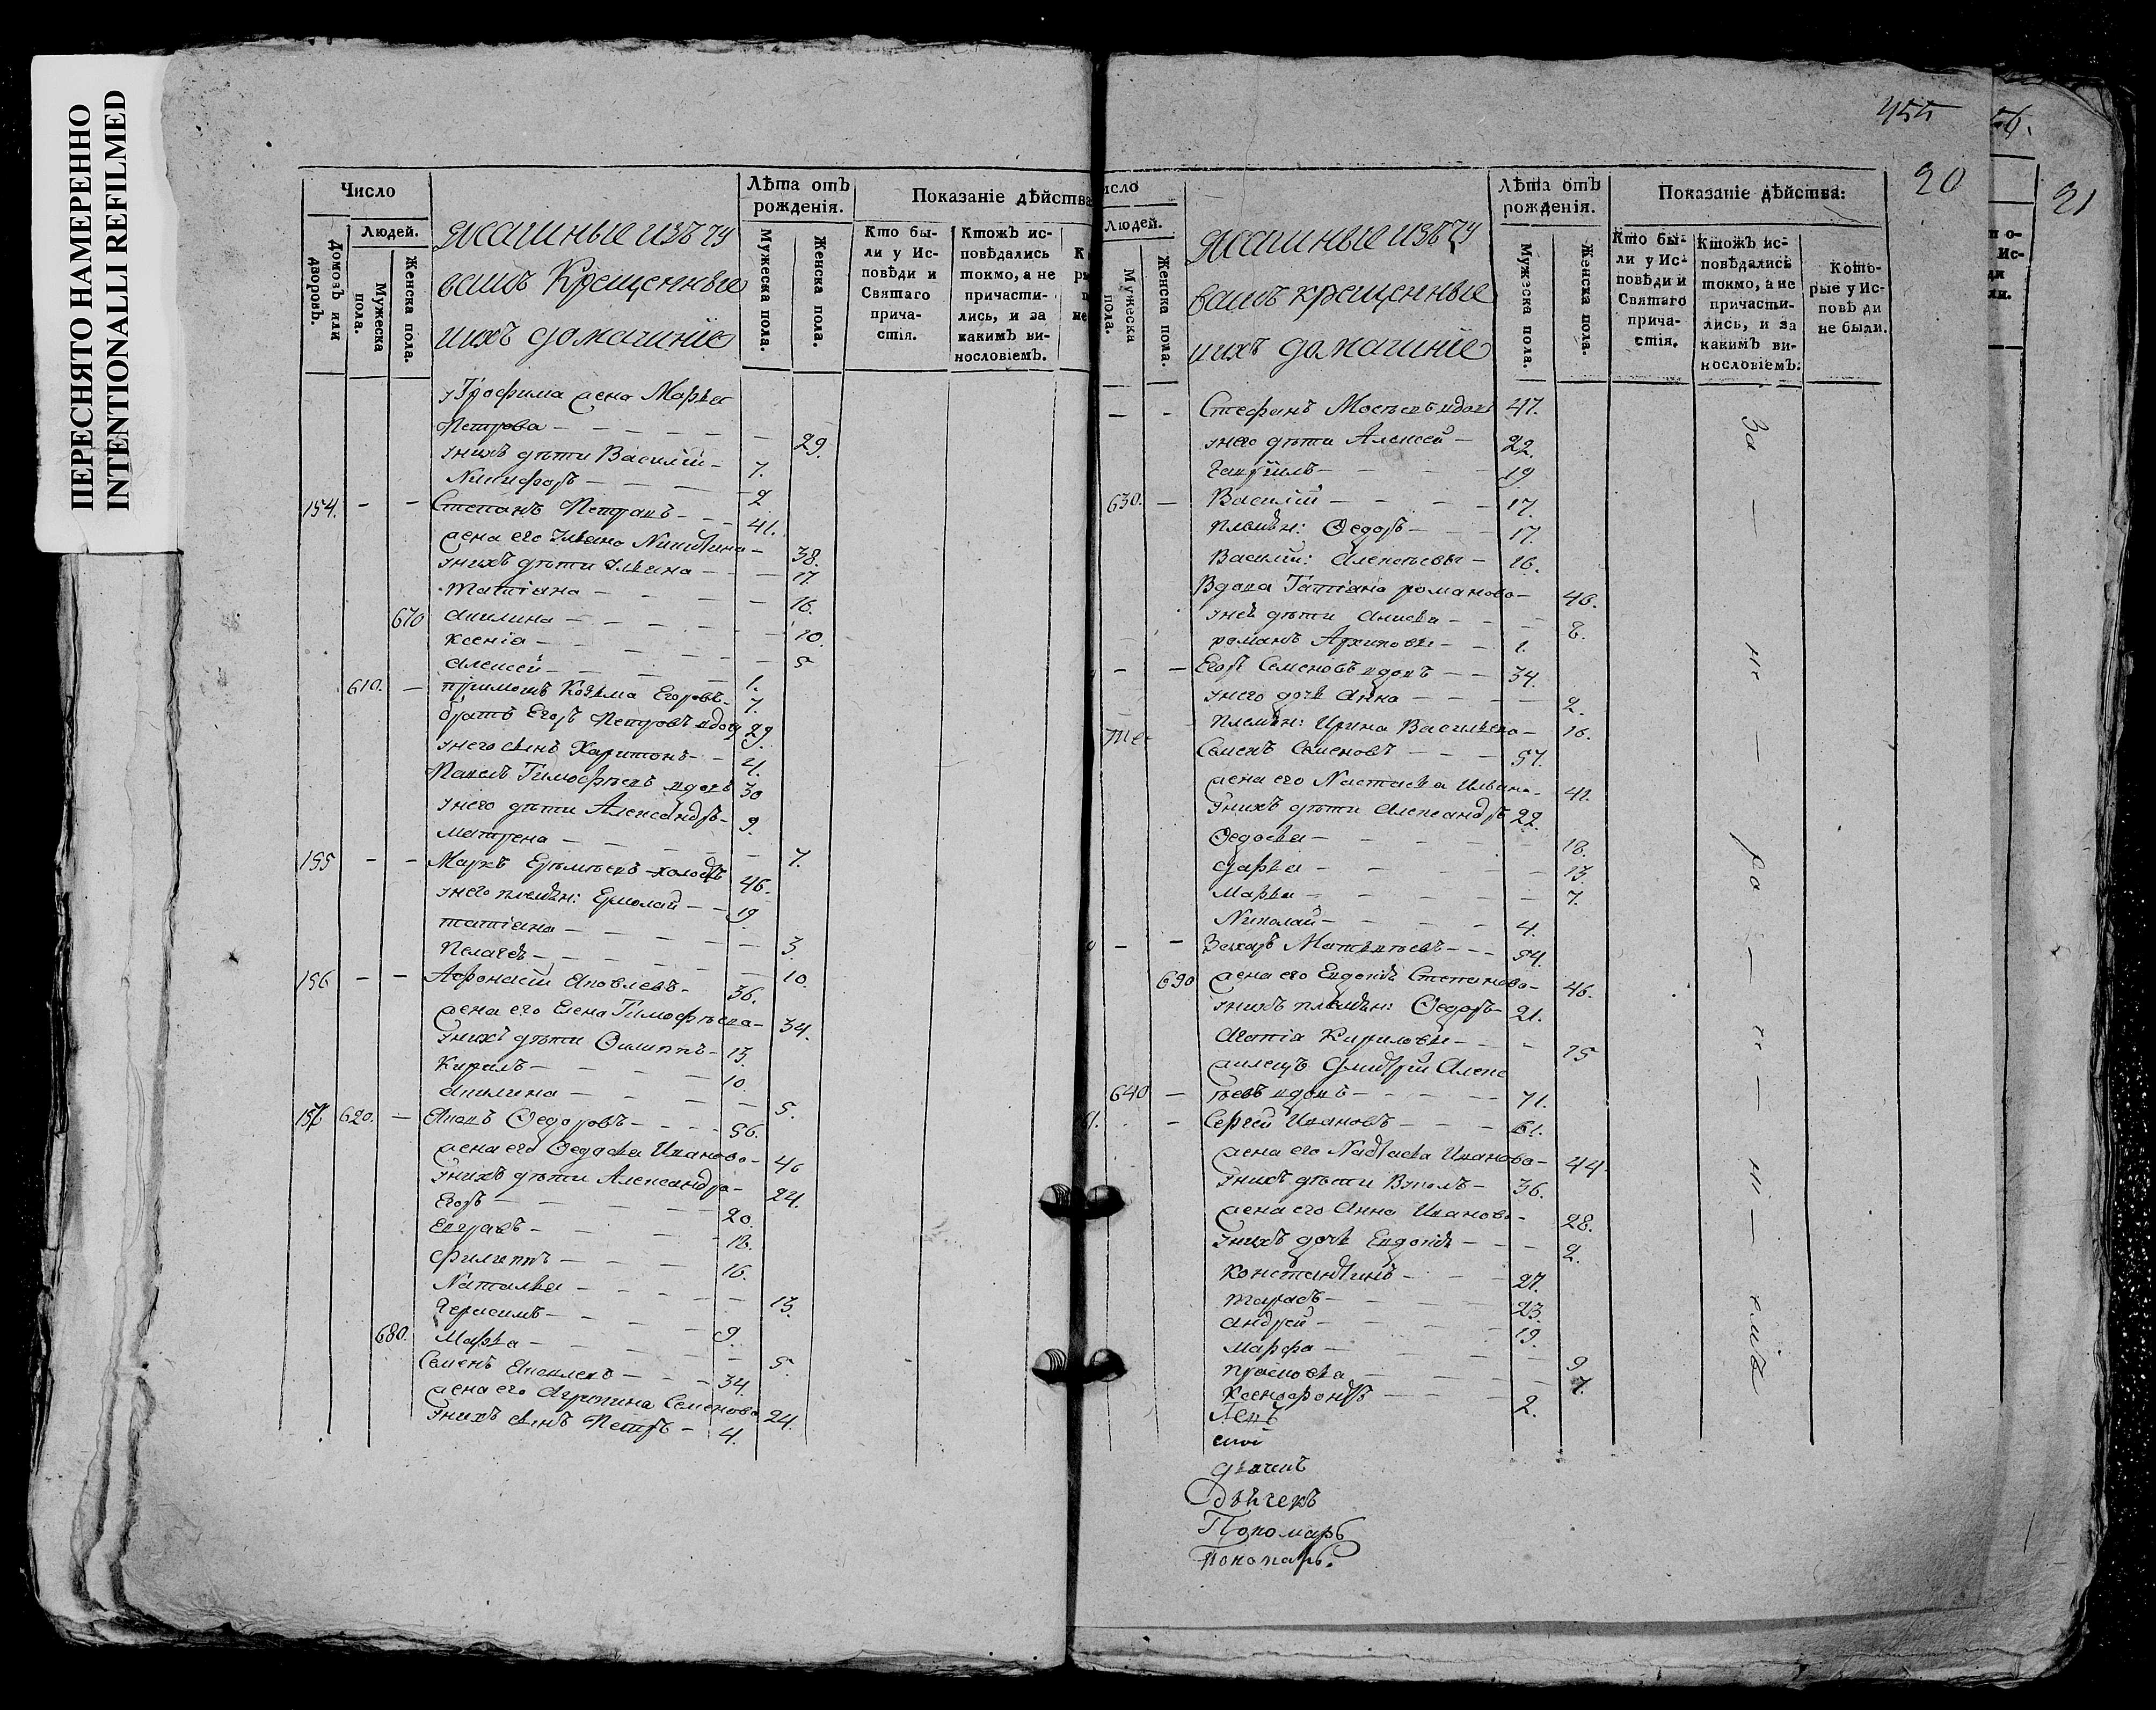 ПЕРЕСНЯТО НАМЕРЕННО
INTENTIONALLI REFILMED
Число
Людей.
Домовъ или дворовъ.
Мужеска пола.
Женска пола.
ясашные изъ чу
вашъ Крещенные
и ихъ домашніе
Лѣта отъ рожденія.
Мужеска пола.
Женска пола.
Показаніе дѣйства
Кто бы-
ли у Ис-
повѣди и
Святаго
прича-
стія.
Ктожъ ис-
повѣдались
токмо, а не
причасти-
лись, и за
какимъ ви-
нословіемъ.
Трофима жена Марья
Петрова - 29.
у нихъ дѣти Василій - 7.
Никифоръ - 2
154. - - Степанъ Петровъ - 41.
жена его Ульяна Никитина - 38.
у нихъ дѣти Ульяна - 17.
Татіана - 16.
670 Акилина - 10.
Ксенія - 5
Алексей - 1.
610. - Козьма Егоровъ - 7.
братъ Егоръ Петровъ вдовъ 29.
у него сынъ Харитонъ - 4.
Павелъ Тимофѣевъ вдовъ 30
у него дѣти Александръ - 9.
Матрена - 7.
155 - - Маркъ холостъ 46.
у него племян: Ермолай - 19.
Татіана - 3.
Пелагея - 10.
156 - - Афонасій Яковлевъ - 36.
жена его Елена Тимофѣева - 34.
у нихъ дѣти Филиппъ - 13.
Кирилъ - 10.
Акилина - 5.
157 620. - Яковъ Федоровъ - 56.
жена его Федосья Иванова - 46
у нихъ дѣти Александра - 24.
Егоръ - 20.
Евграфъ - 18.
Филиппъ - 16.
Наталья - 13.
Герасимъ - 9.
680. Марья - 5.
Семенъ Яковлевъ - 34.
жена его Агрипина Семенова 24.
у нихъ сынъ Петръ - 4.
455
20
исло
Людей.
Мужеска пола.
Женска пола.
ясашные изъ чу
вашъ крещенные
и ихъ домашніе
Лѣта отъ рожденія.
Мужеска пола.
Женска пола.
Показаніе дѣйства:
Кто бы-
ли у Ис-
повѣди и
Святаго
прича-
стія.
Ктожъ ис-
повѣдались
токмо, а не
причасти-
лись, и за
какимъ ви-
нословіемъ:
Кото-
рые у Ис-
повѣ ди
не были.
21
- - Стефанъ Мосѣевъ вдовъ 47.
у него дѣти Алексей - 22.
Гаврилъ - 19
630. - Василій - 17.
племян: Федоръ - 17.
Василій: Алексѣевы - 16.
Вдова Татіана романова - 46.
у ней дѣти Анисья - 8.
романъ Архиповы - 1.
- - Егоръ Семеновъ вдовъ - 34.
у него дочь Анна - 2.
племян: Ирина Васильева - 16.
Семенъ Семеновъ - 57.
жена его Настасья Ильина - 42.
у нихъ дѣти Александръ 22.
Федосья - 18.
дарья - 13.
Марья - 7.
Николай - 4.
- - Захаръ Матвѣевъ - 54.
690 жена его Евдокія Степанова - 46.
у нихъ племян: Федоръ - 21.
Агафія Кириловы - 15
Дмитрій Алекс
640 - ѣевъ вдовъ - 71.
- Сергей Ивановъ - 61.
жена его Настасья Иванова - 44
у нихъ дѣти - 36.
жена его Анна Иванова - 28.
у нихъ дочь Евдокія - 2.
Константинъ - 27.
тарасъ - 23.
андрей - 19.
марфа - 9
прасковья - 7.
Ксенофонтъ - 2.
дьячекъ
Пономарь
Пономарь.